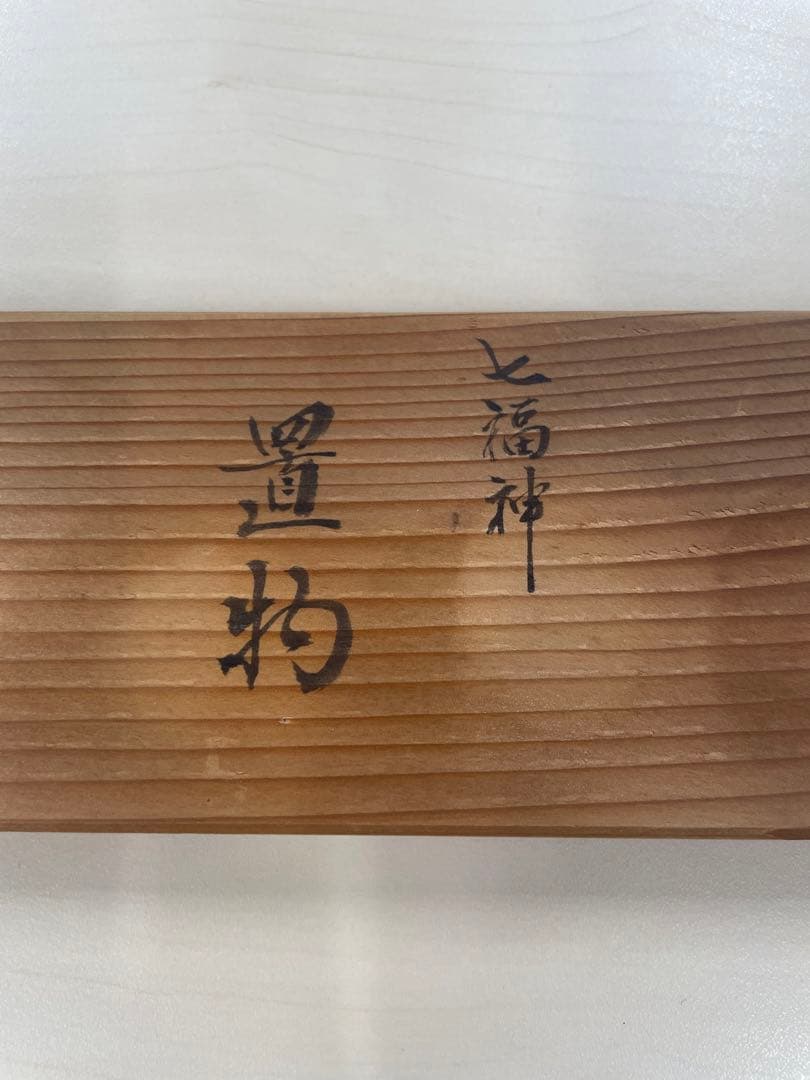 七福神
置物